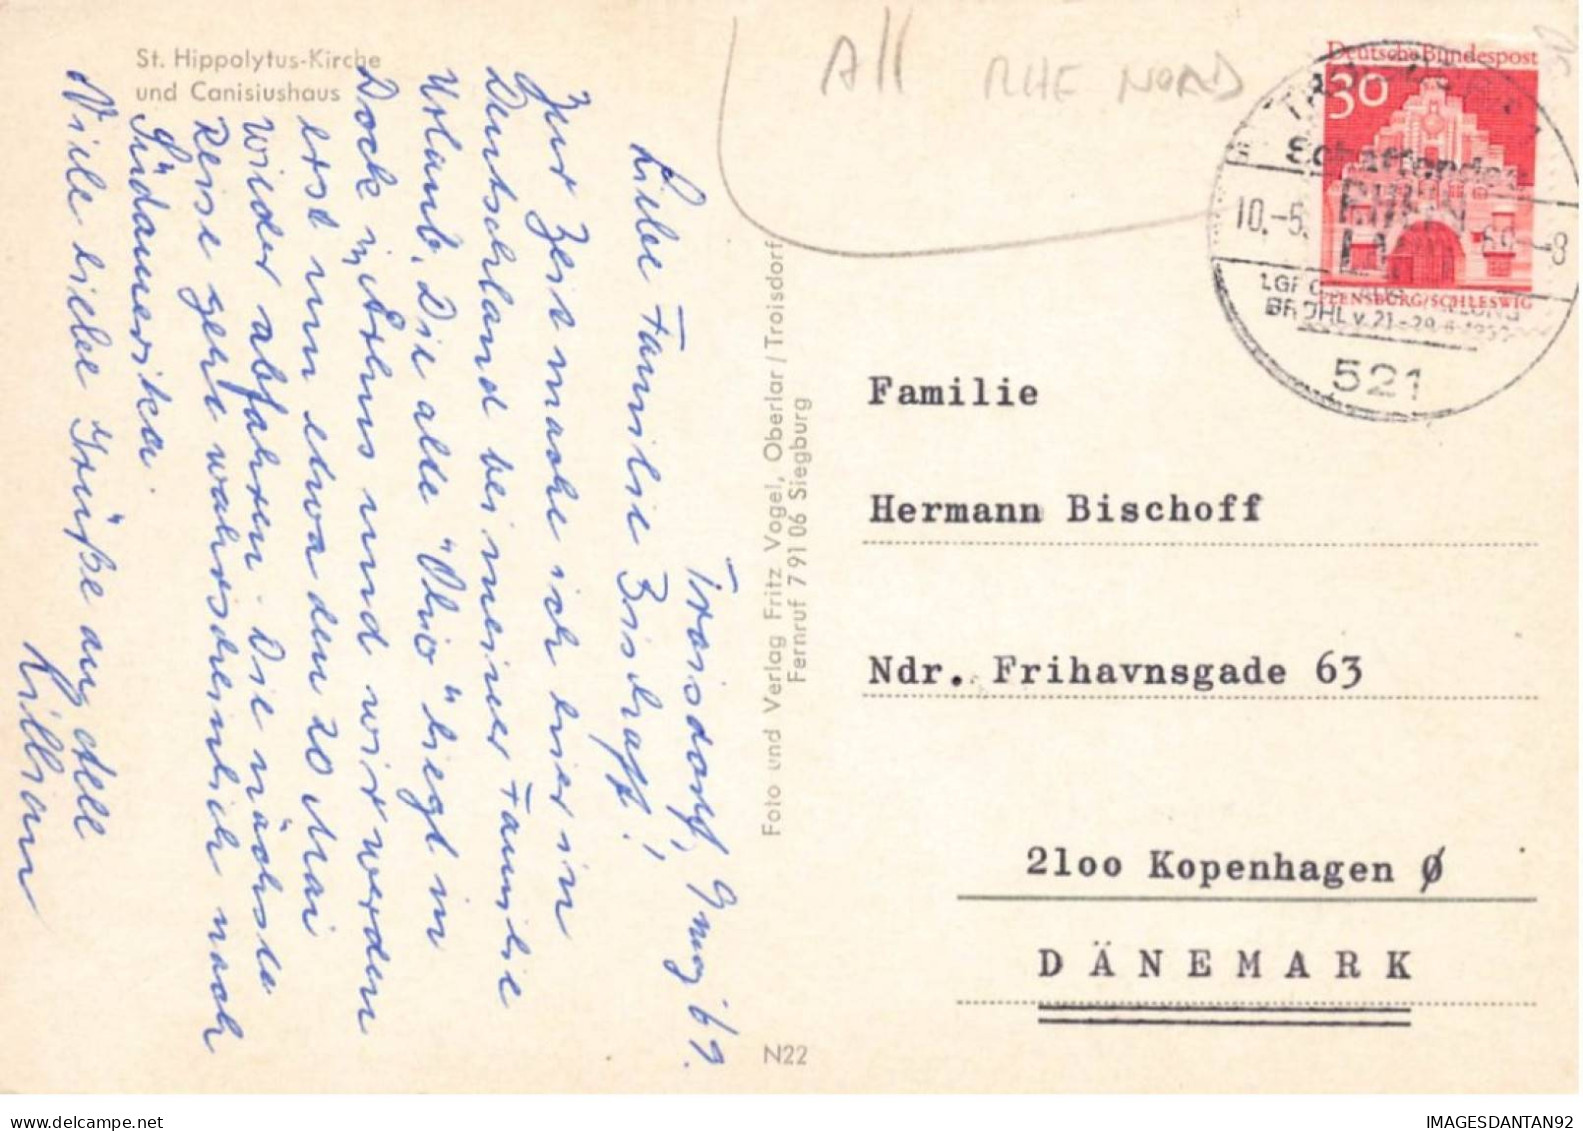 St. Hippolytus-Kirche
und Canisiushaus
All RHE NORD
Troisdorf, 9 may 69.
Liebe Familie Bischoff!
Zur Zeit mache ich hier in
Deutschland bei meiner Familie
Urlaub. Die alte "Ohio" liegt in
Dock in Århus und wir werden
erst nun etwa den 20 Mai
wieder abfahren. Die nächste
Reise geht wahrscheinlich nach
Südamerika.
Viele liebe Grüße an Alle
Killian
Foto und Verlag Fritz Vogel, Oberlar / Troisdorf
Fernruf 7 91 06 Siegburg
N22
Deutsche Bundespost
30
FLENSBURG/SCHLESWIG
Schaffendes
10.-5. 69.-8
BRÜHL v. 21.-29.
521
Familie
Hermann Bischoff
Ndr. Frihavnsgade 63
2100 Kopenhagen Ø
DÄNEMARK
delcampe.net
IMAGESDANTAN92